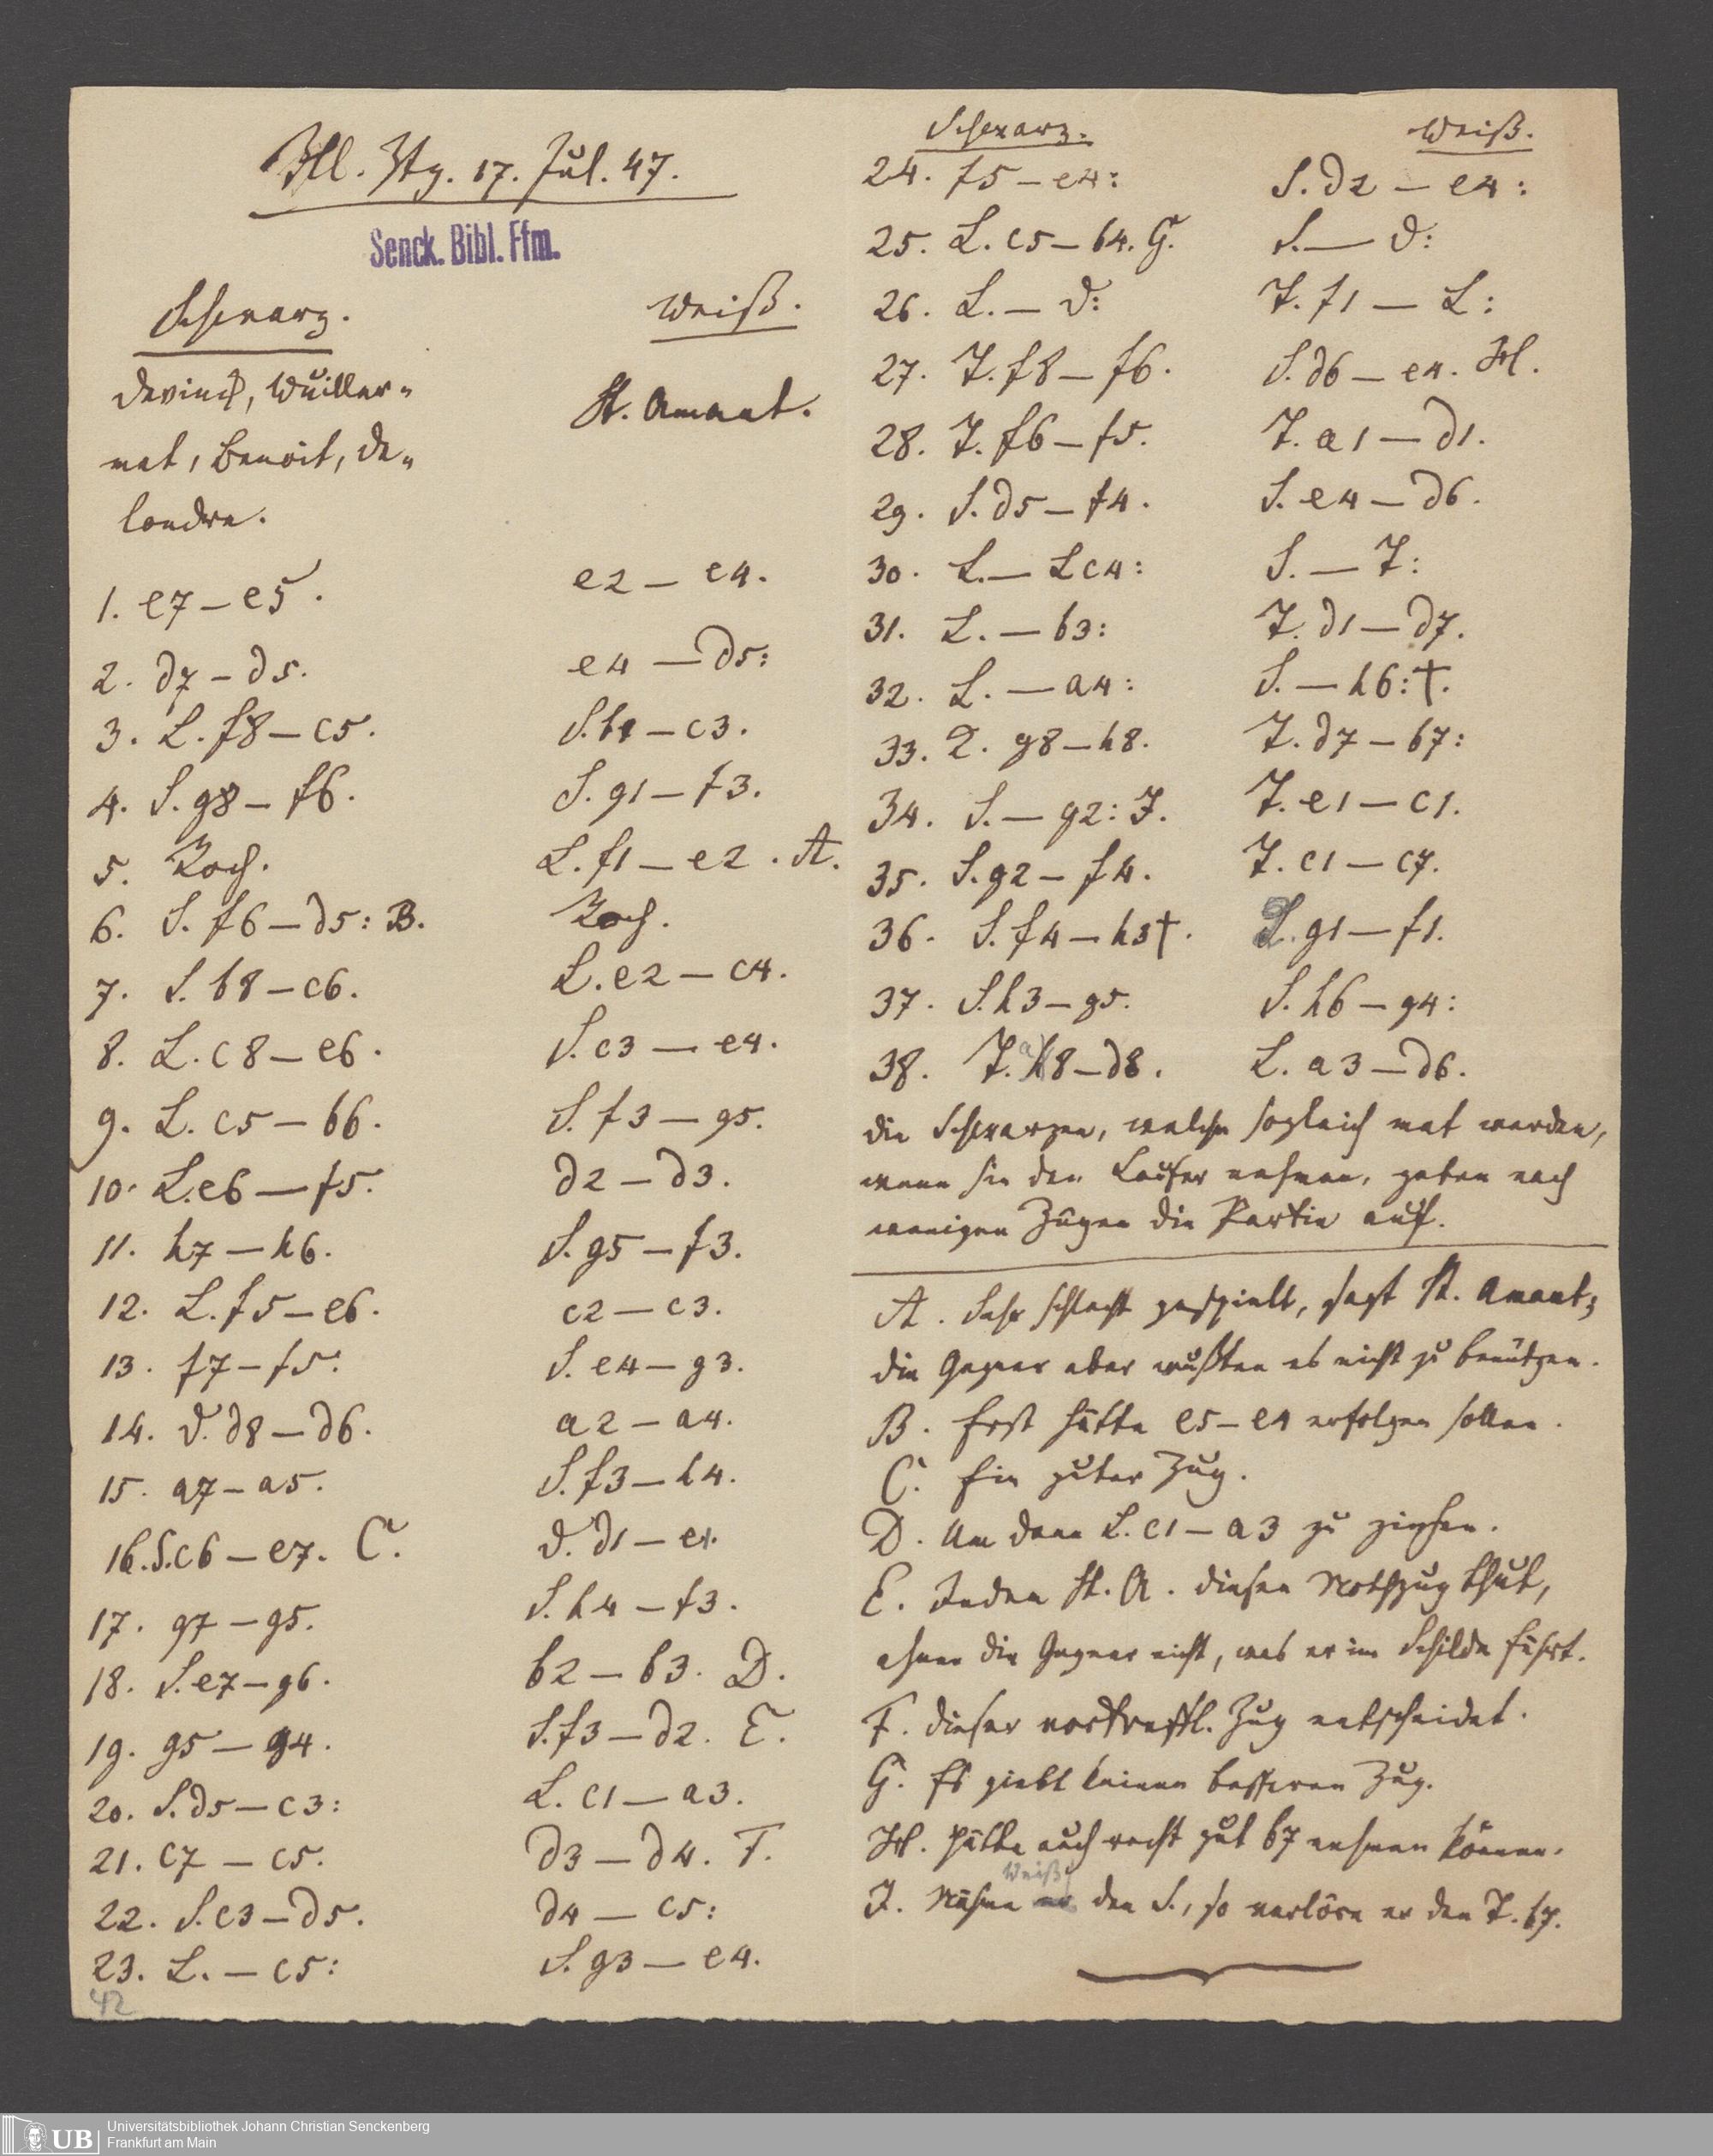 Ill. Ztg. 17. Jul. 47.
Senck. Bibl. Ffm.
Schwarz. Weiß.
Devinck, Wuiller-
met, Benoit, De-
londre.
St. Amant.
1. e7 – e5. e2 – e4.
2. d7 – d5. e4 – d5:
3. L. f8 – c5. S. b1 – c3.
4. S. g8 – f6. S. g1 – f3.
5. Roch. L. f1 – e2. A.
6. S. f6 – d5: B. Roch.
7. S. b8 – c6. L. e2 – c4.
8. L. c8 – e6. S. c3 – e4.
9. L. c5 – b6. S. f3 – g5.
10. L. e6 – f5. d2 – d3.
11. h7 – h6. S. g5 – f3.
12. L. f5 – e6. c2 – c3.
13. f7 – f5. S. e4 – g3.
14. D. d8 – d6. a2 – a4.
15. a7 – a5. S. f3 – h4.
16. S. c6 – e7. C. D. d1 – e1.
17. g7 – g5. S. h4 – f3.
18. S. e7 – g6. b2 – b3. D.
19. g5 – g4. S. f3 – d2. E.
20. S. d5 – c3: L. c1 – a3.
21. c7 – c5. d3 – d4. F.
22. S. c3 – d5. d4 – c5:
23. L. – c5: S. g3 – e4.
42
Schwarz. Weiß.
24. f5 – e4: S. d2 – e4:
25. L. c5 – b4. G. S. — D:
26. L. – D: T. f1 — L:
27. T. f8 – f6. S. d6 – e4. H.
28. T. f6 – f5. T. a1 – d1.
29. S. d5 – f4. S. e4 – d6.
30. L. — L c4: S. — T:
31. L. – b3: T. d1 – d7.
32. L. – a4: S. – h6: †.
33. K. g8 – h8. T. d7 – b7:
34. S. – g2: J. T. e1 – c1.
35. S. g2 – f4. T. c1 – c7.
36. S. f4 – h3 †. K. g1 – f1.
37. S. h3 – g5. S. h6 – g4:
38. T. a8 – d8. L. a3 – d6.
Die Schwarzen, welche sogleich mat werden,
wenn sie den Laufer nehmen, geben nach
wenigen Zügen die Partie auf.
A. Sehr schlecht gespielt, sagt St. Amant;
die Gegner aber wußten es nicht zu benützen.
B. Erst hätte e5 – e4 erfolgen sollen.
C. Ein guter Zug.
D. Um dann L. c1 – a3 zu ziehen.
E. Indem St. A. diesen Nothzug thut,
ahnen die Gegner nicht, was er im Schilde führt.
F. Dieser vortreffl. Zug entscheidet.
G. Es giebt keinen besseren Zug.
H. Hätte auch recht gut b7 nehmen können.
Weiß
J. Nähme er den S., so verlöre er den T. b7.
UB Universitätsbibliothek Johann Christian Senckenberg
Frankfurt am Main